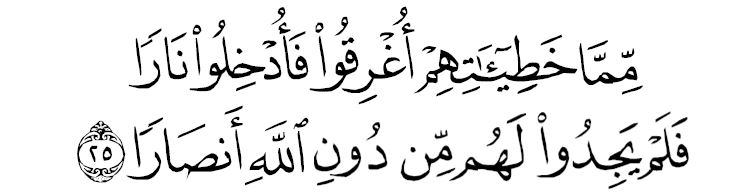 مِّمَّا خَطِيٓـَٰٔتِهِمْ أُغْرِقُوا۟ فَأُدْخِلُوا۟ نَارًا
فَلَمْ يَجِدُوا۟ لَهُم مِّن دُونِ ٱللَّهِ أَنصَارًا ٢٥